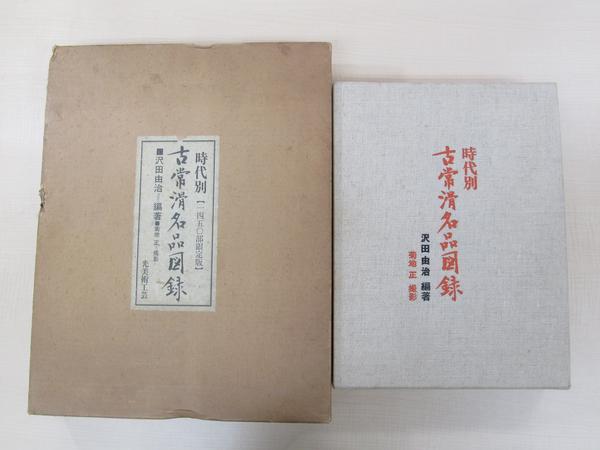 時代別【一四五〇部限定版】
古常滑名品図録
■沢田由治─編著●菊地 正─撮影
光美術工芸
時代別
古常滑名品図録
沢田由治 編著
菊地 正 撮影